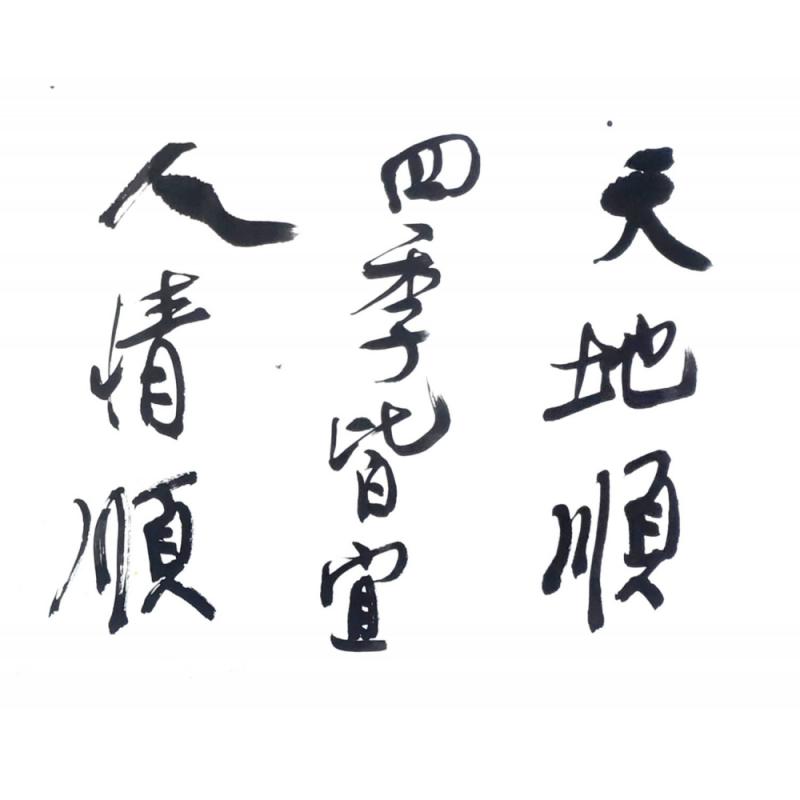 天地順
四季皆宜
人情順